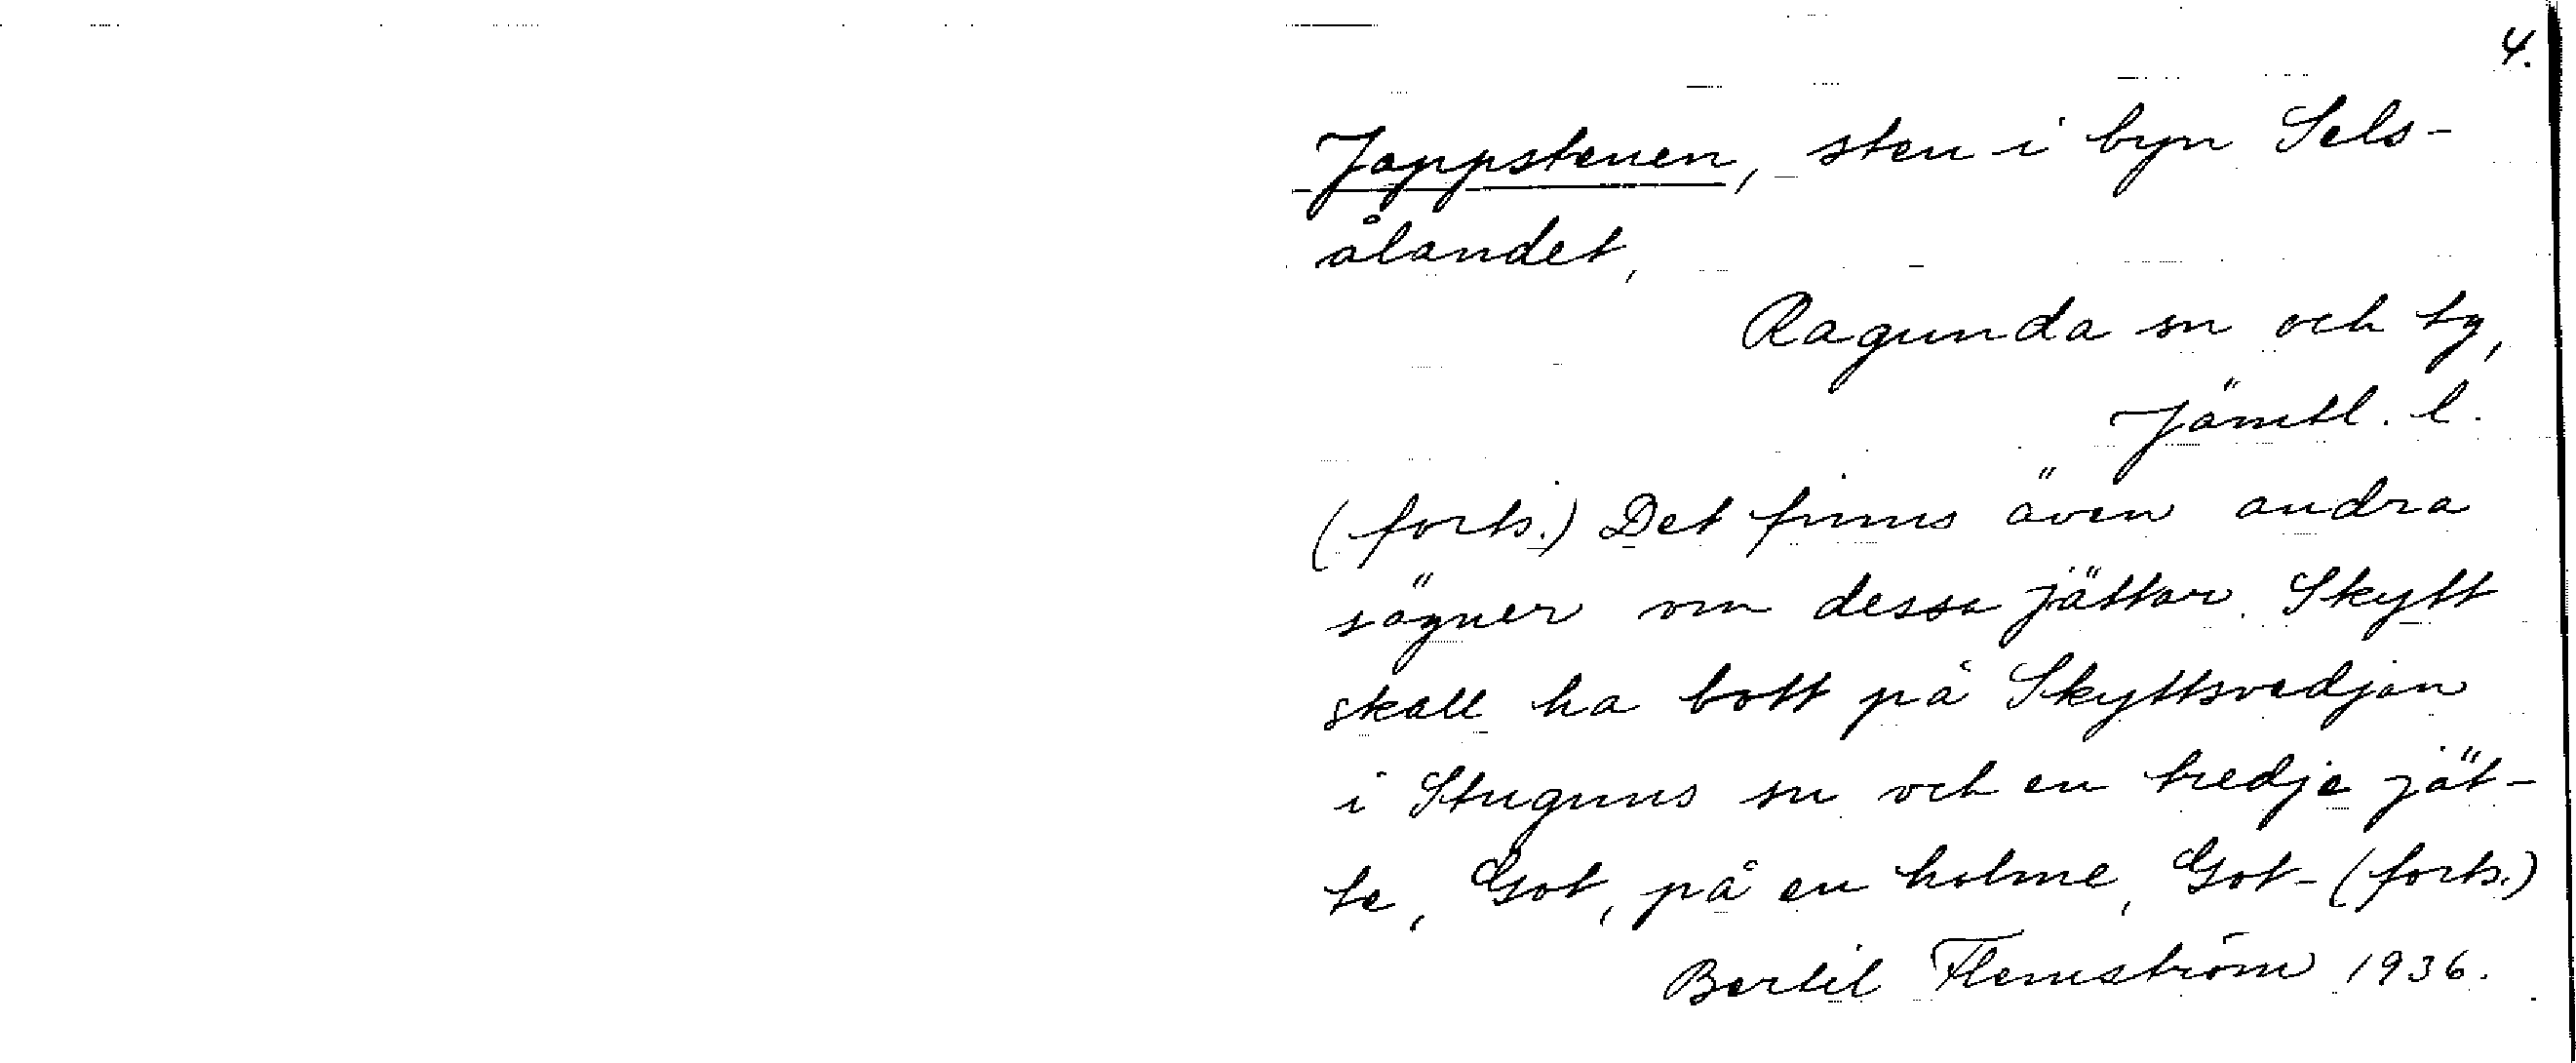 4.
Jappstenen, sten i byn Sels-
ålandet,
Ragunda sn och tg,
Jämtl. l.
(forts.) Det finns även andra
sägner om dessa jättar. Skytt
skall ha bott på Skyttsvedjan
i Stuguns sn och en tredje jät-
te, Got, på en holme, Got- (forts.)
Bertil Flemström 1936.